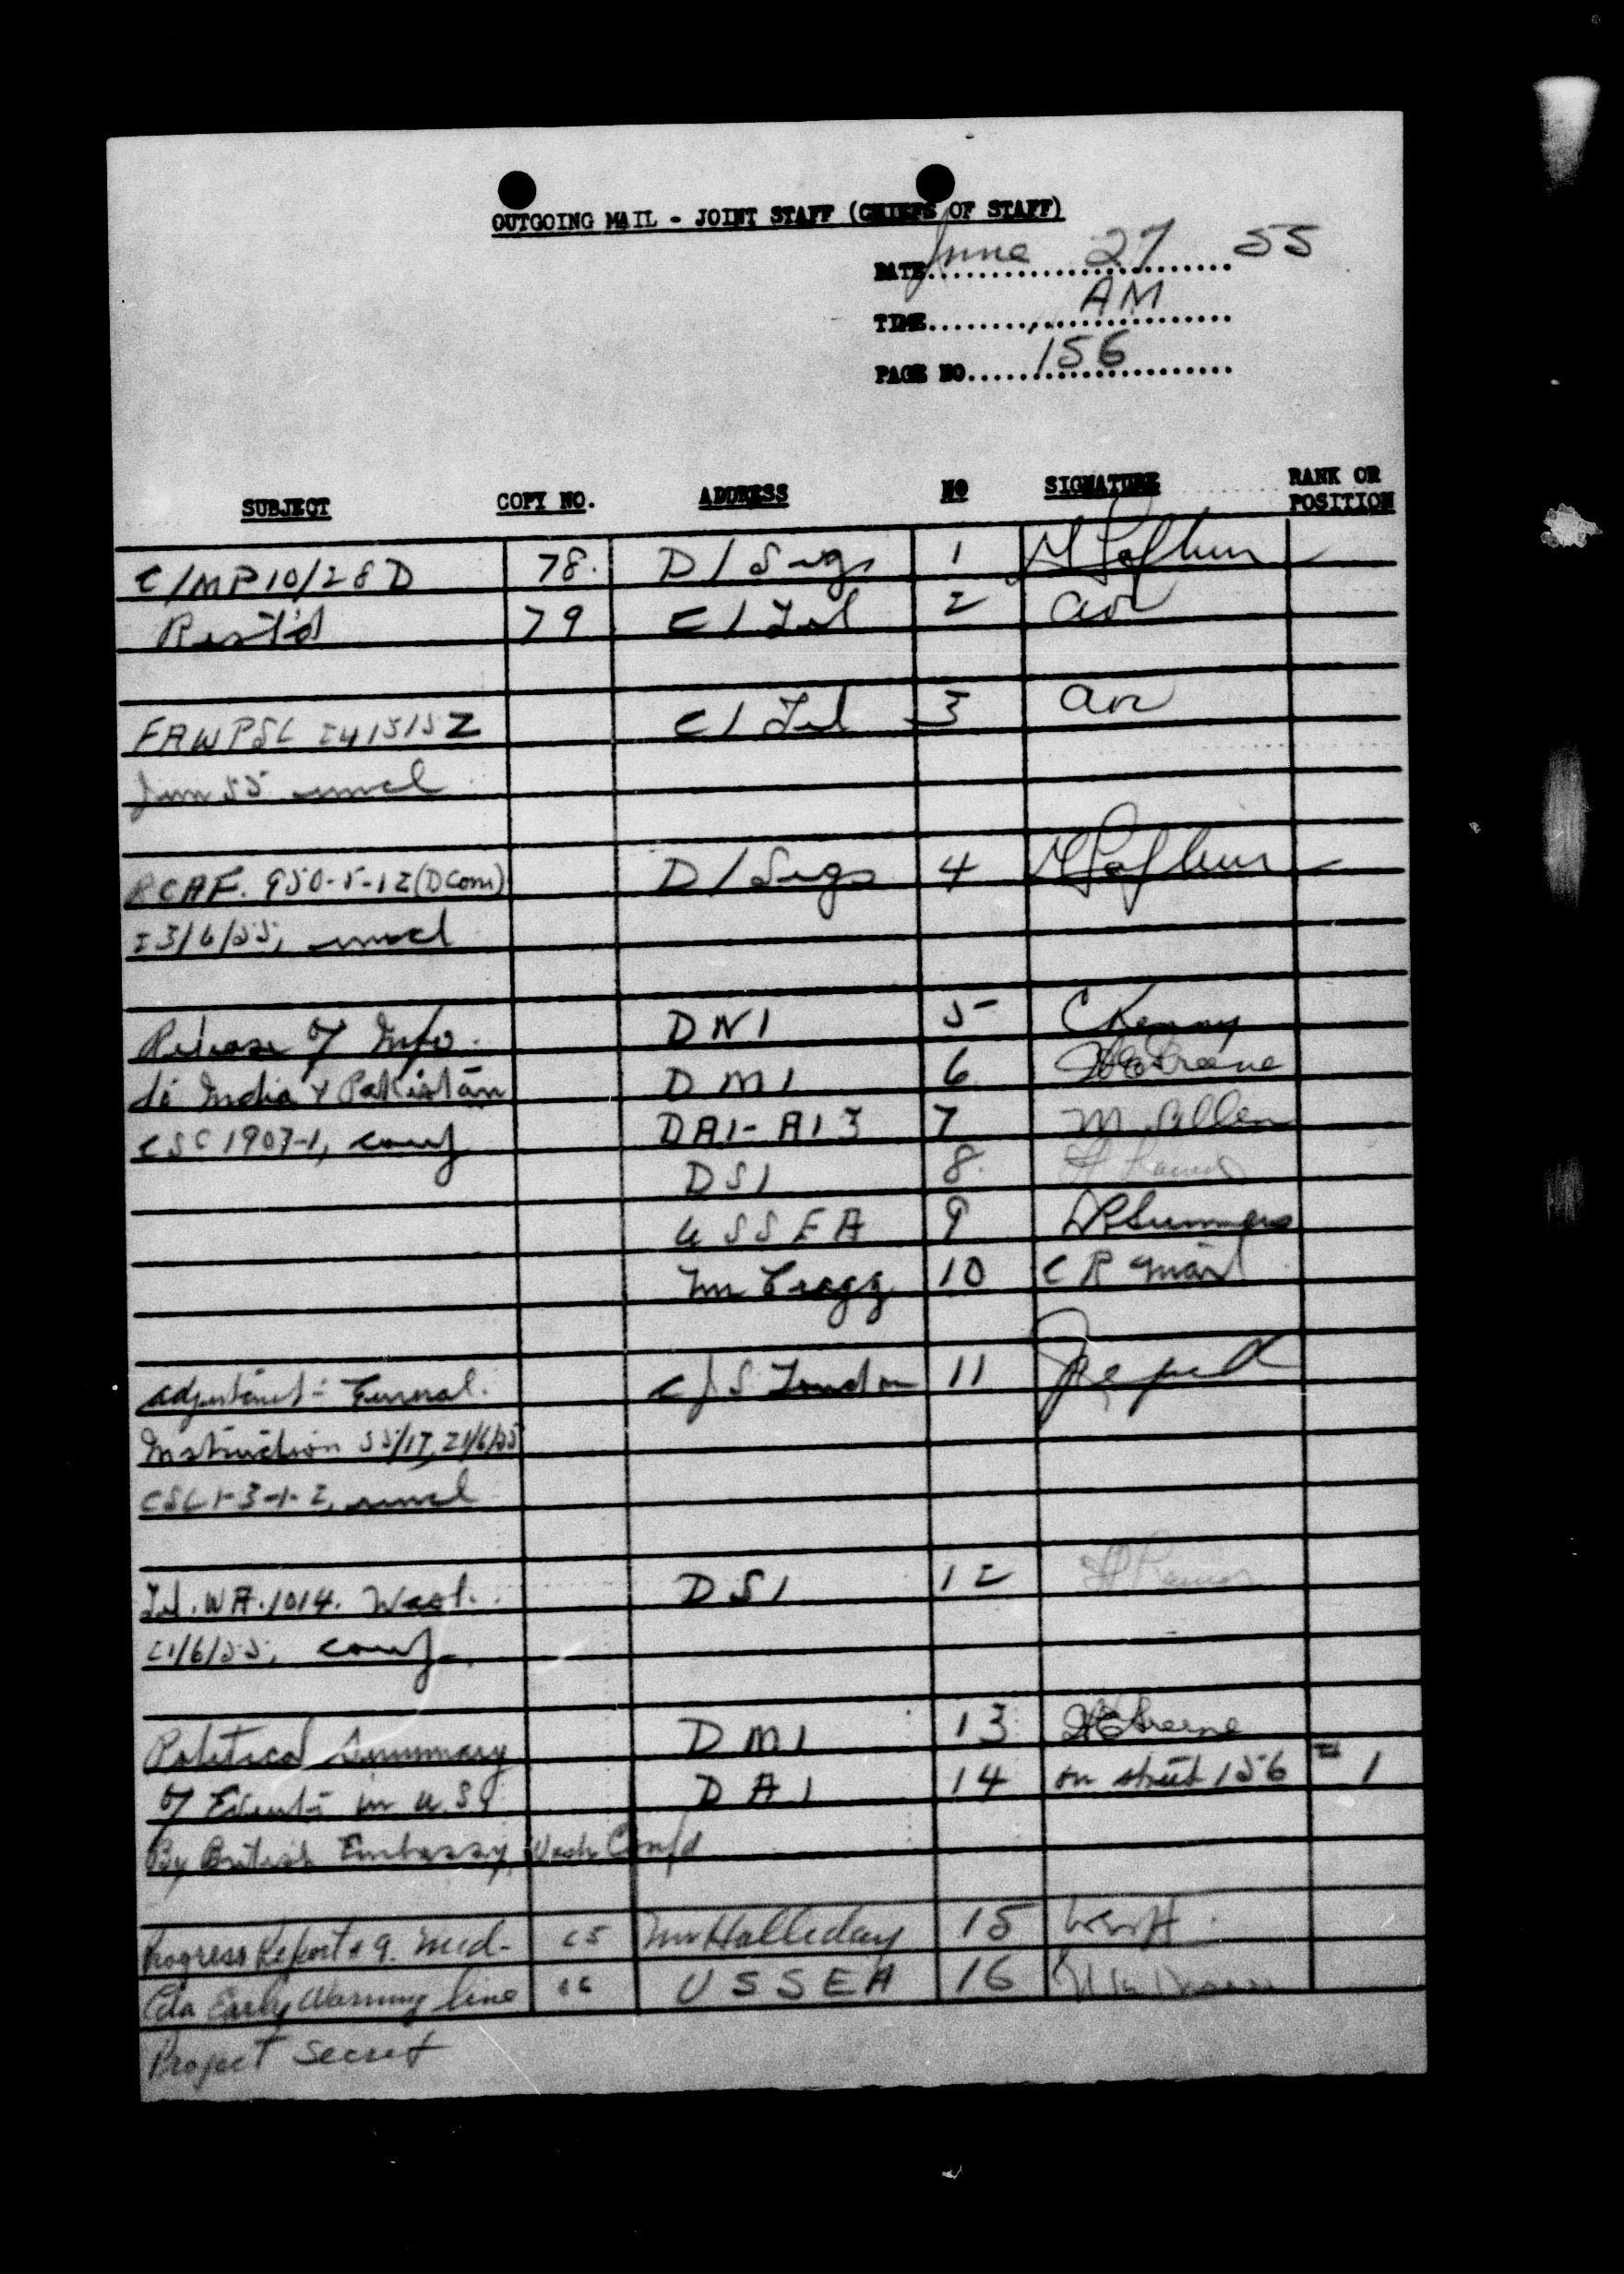 OUTGOING MAIL - JOINT STAFF (CHIEFS OF STAFF)
DATE June 27 55
TIME AM
PAGE NO 156
SUBJECT COPY NO. ADDRESS NO SIGNATURE RANK OR POSITION
C/MP10/28D 78. D/Sigs 1
Rest'd 79 C/Tel 2
C/Tel 3
Jun 55 uncl
RCAF. 950-5-12(DCom) D/Sigs 4
23/6/55, uncl
Release of Info. DNI 5 C Kenny
to India & Pakistan DMI 6 Greene
CSC 1907-1, conf DAI-AI3 7 M Allen
DSI 8.
USSEA 9 Summers
Mr Cragg 10 C R
Adjustment C/JS London 11
Instruction 55/17, 21/6/55
CSC1-3-1-2, uncl
Tel. WA.1014. Wash. DSI 12
21/6/55, conf.
Political Summary DMI 13 Greene
of Events in US DAI 14 on sheet 156 = 1
By British Embassy, Wash Conf'd
Progress Report # 9. Mid- 25 Mr Halleday 15
Cda Early Warning line 26 USSEA 16
Project Secret